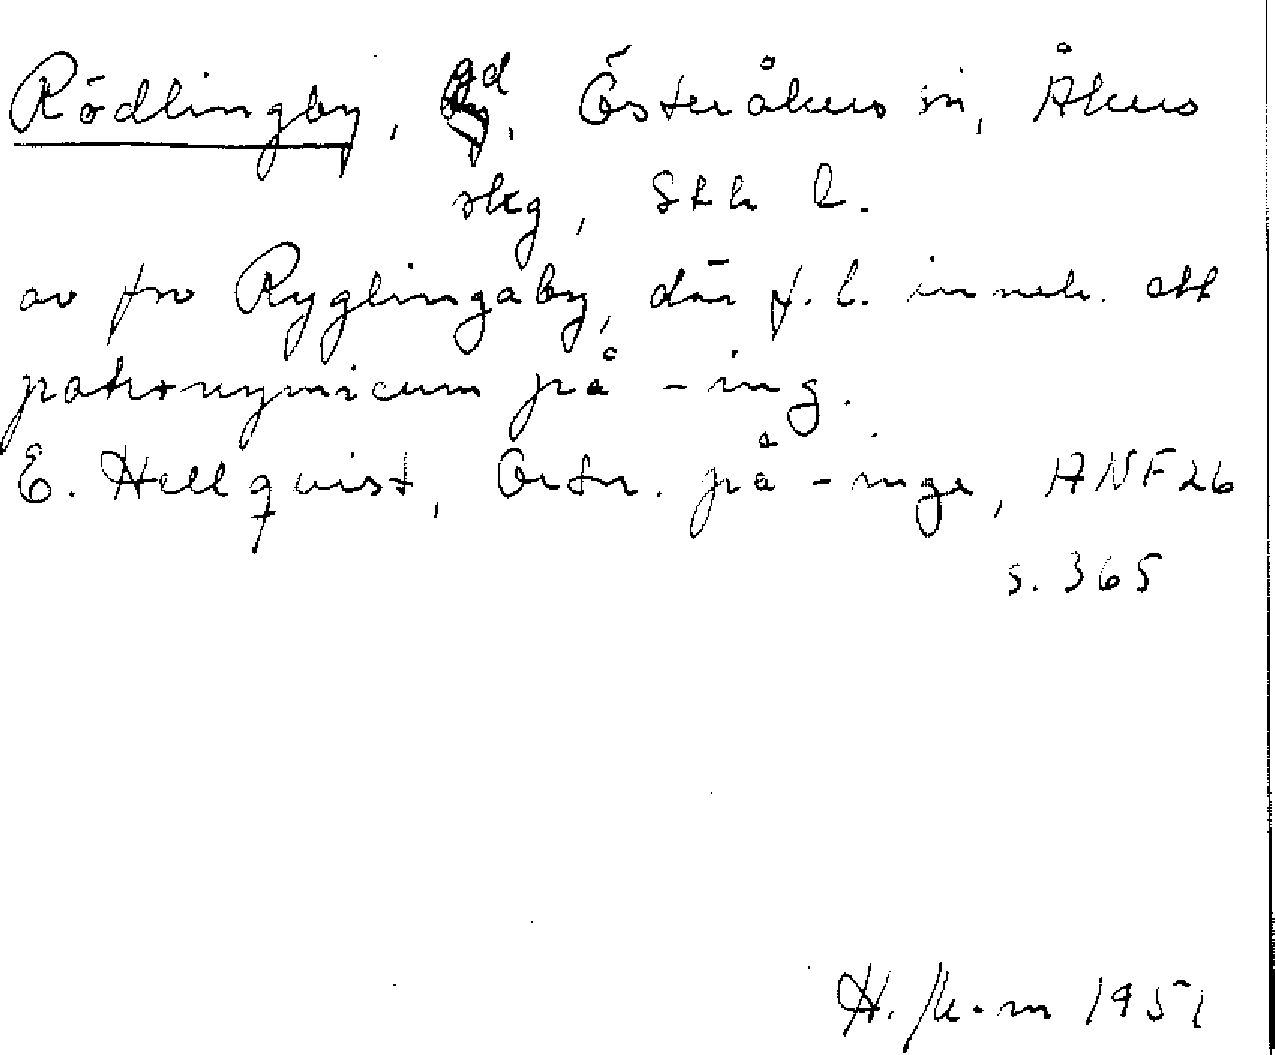 Rödlingby, gd, Österåkers sn, Åkers
skg, Sthlm l.
av fsv Ryglingaby, där f. l. inneh. ett
patronymicum på -ing.
E. Hellquist, Ortn. på -inge, ANF 26
s. 365
1951